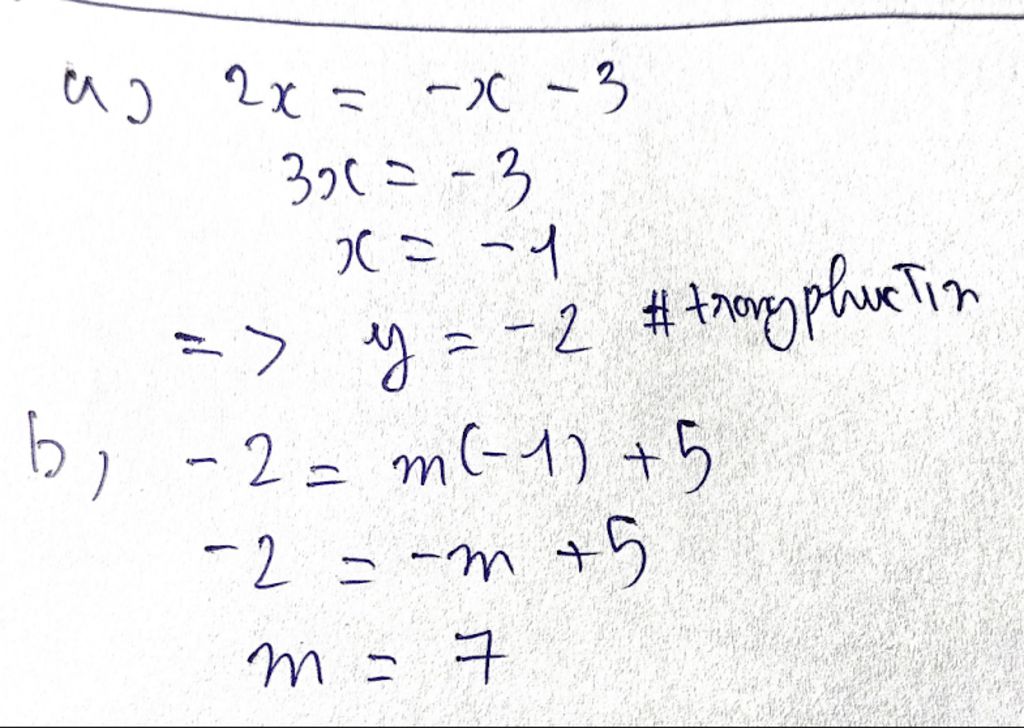 a) 2x = -x - 3
3x = -3
x = -1
=> y = -2 #trongphucTin
b, -2 = m(-1) + 5
-2 = -m + 5
m = 7